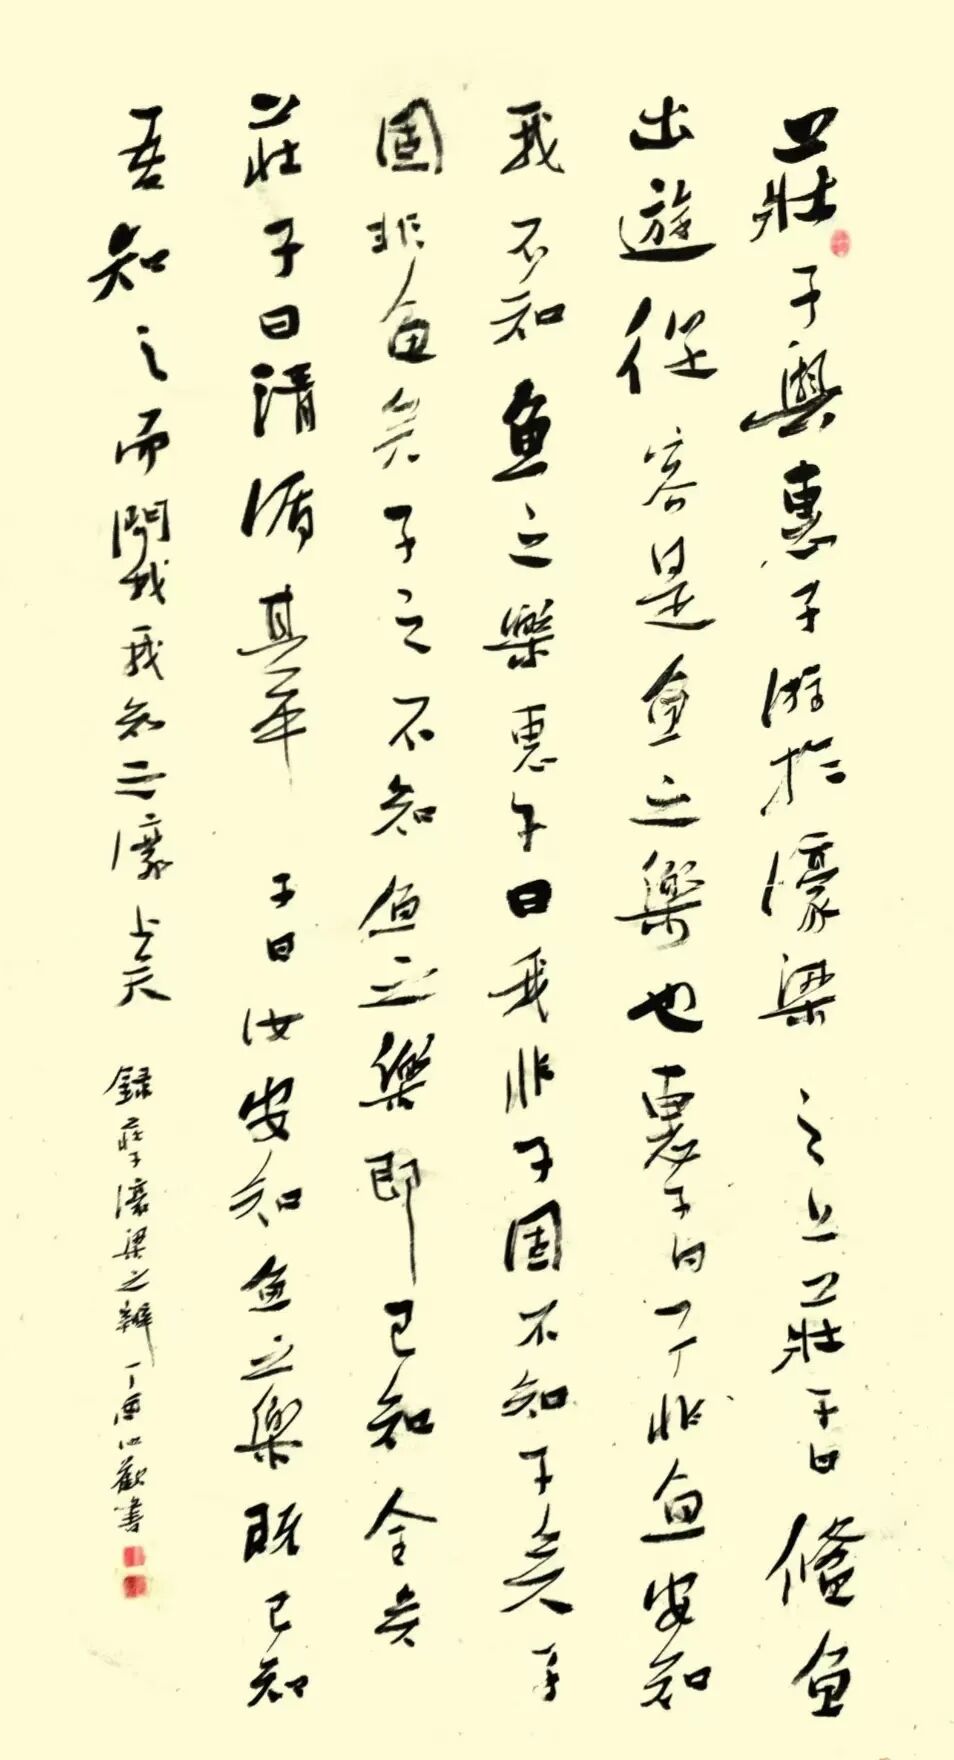 莊子與惠子游於濠梁之上莊子曰儵魚
出遊從容是魚之樂也惠子曰子非魚安知
我不知魚之樂惠子曰我非子固不知子矣子
固非魚矣子之不知魚之樂即已知全矣
莊子曰請循其本子曰汝安知魚之樂既已知
吾知之而問我我知之濠上矣
錄莊子濠梁之辯丁酉歡書